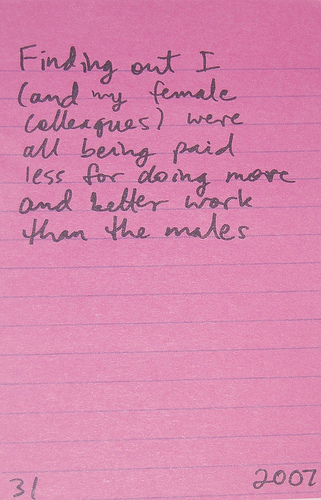 Finding out I
(and my female
colleagues) were
all being paid
less for doing more
and better work
than the males
31
2007